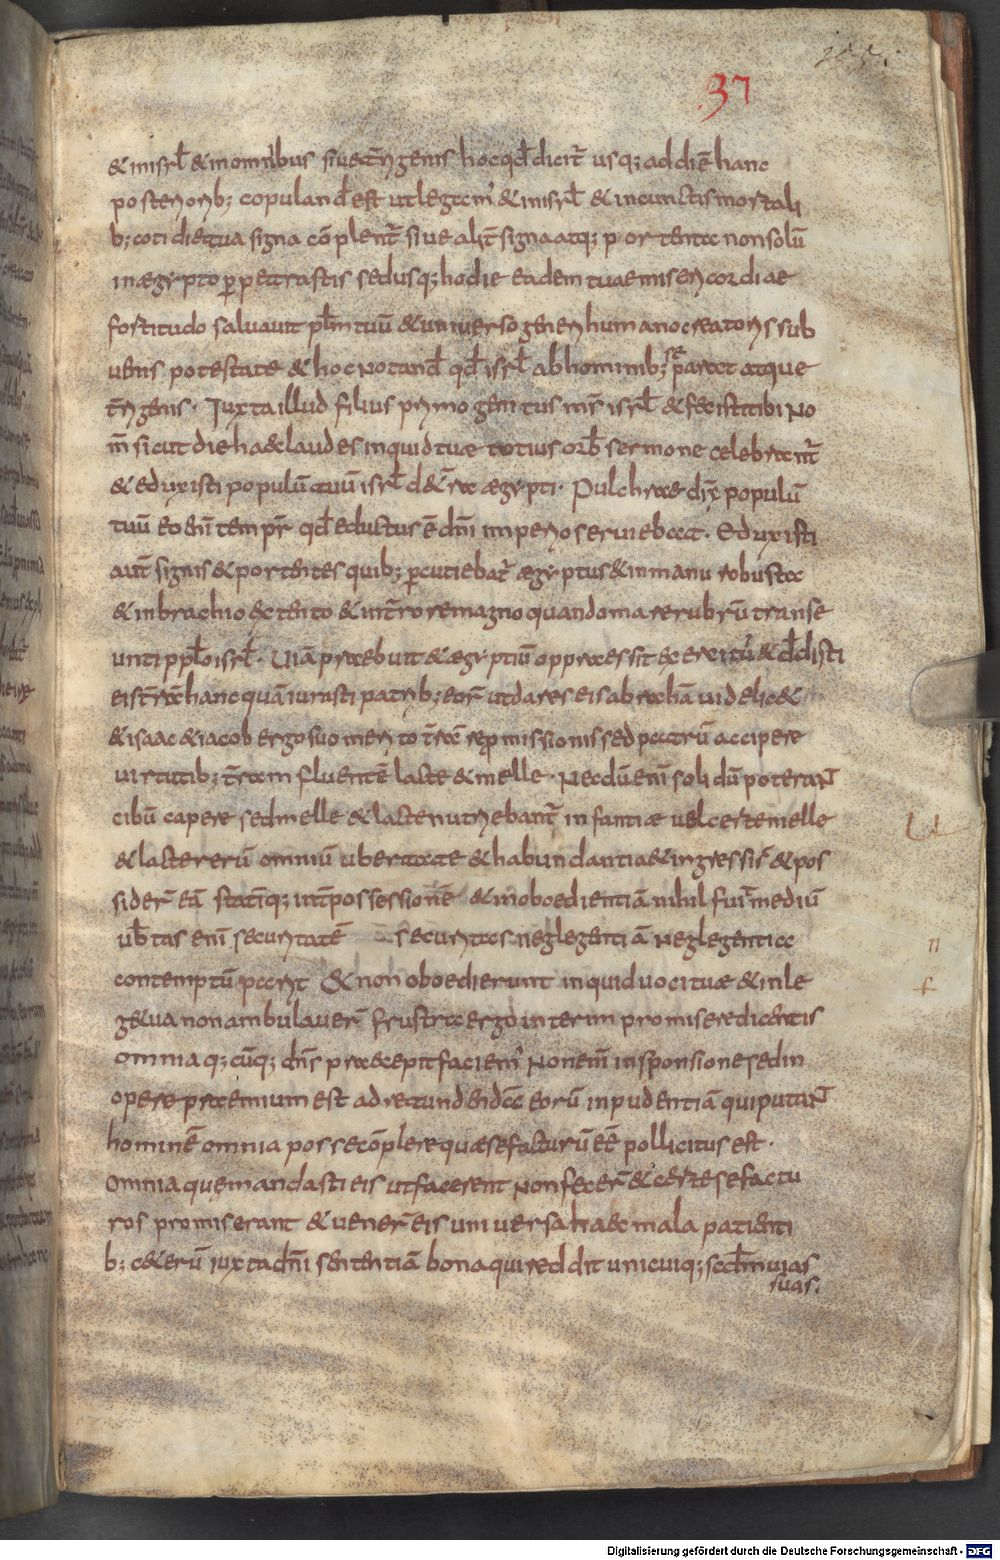 37
& in isrł & in omnibus siue t̄rigenis hoc qđ dicit̄ usq; ad diē hanc
posteriorib; copuland̄ est ut legam̄ & in isrł & in cunctis mortali
b; cotidie tua signa cō plent̄ siue alit̄ signa atq; portenta non solū
in ægypto ꝑpetrastis sed usq; hodie eadem tuae misericordiae
fortitudo saluauit pł̄m tuū & uniuerso generi humano creatoris sub
ueris potestate & hoc notand̄ qđ isrł ab hominib; separat atque
t̄rigenis. Iuxta illud filius primogenitus m̄s isrł & fecisti tibi no
m̄ sicut die hac & laudes inquid tuæ totius orb̄ sermone celebrant̄
& eduxisti populū tuū isrł d& t̄ra ægypti. Pulchrae dix̄ populū
tuū eo enī tempr̄ qđ eductus ē dn̄i imperio seruiebat. Eduxisti
aut̄ signis & portentes quib; ꝑcutiebat̄ ægyptus & in manu robusta
& in brachio extento & int̄rore magno quando mare rubrū transe
unti pplo isrł. Uiā praebuit & ægyptiū oppraessit exercitū & dedisti
eis t̄rā hanc quā iurasti patrib; eor̄ ut dares eis abrahā uidelic&
& isaac & iacob ergo suo merito t̄rā repromissionis sed patrū accipere
uirtutib; t̄ram fluentē lacte & melle. Necdū enī solidū poterant
cibū capere sed melle & lacte nutriebant̄ infantiæ uel certe melle
& lacte rerū omniū ubertate & habundantia & ingressi s̄ & pos
sider̄ eā statīq; int̄ possessionē & inoboedientiā nihil fuit̄ mediū
ub̄tas enī securitatē securitas neglegentiā neglegentia
contemptū parit & non oboedierunt inquid uoci tuæ & in le
ge tua non ambulauer̄ frustra ergo interim promisere dicentis
omnia q;cūq; dn̄s praecepit faciem̄ non enī in sponsione sed in
opere praemium est ad retundendā eorū inpudentiā qui putant
hominē omnia posse cōplere quæ se facturū eē pollicitus est.
Omnia quę mandasti eis ut facerent non fecer̄ & certe se factu
ros promiserant & uener̄ eis uniuersa haec mala patienti
b; ceterū iuxta dn̄i sententiā bona qui reddit unicuiq; secdm̄ uias
suas.
n
f
Digitalisierung gefördert durch die Deutsche Forschungsgemeinschaft - DFG